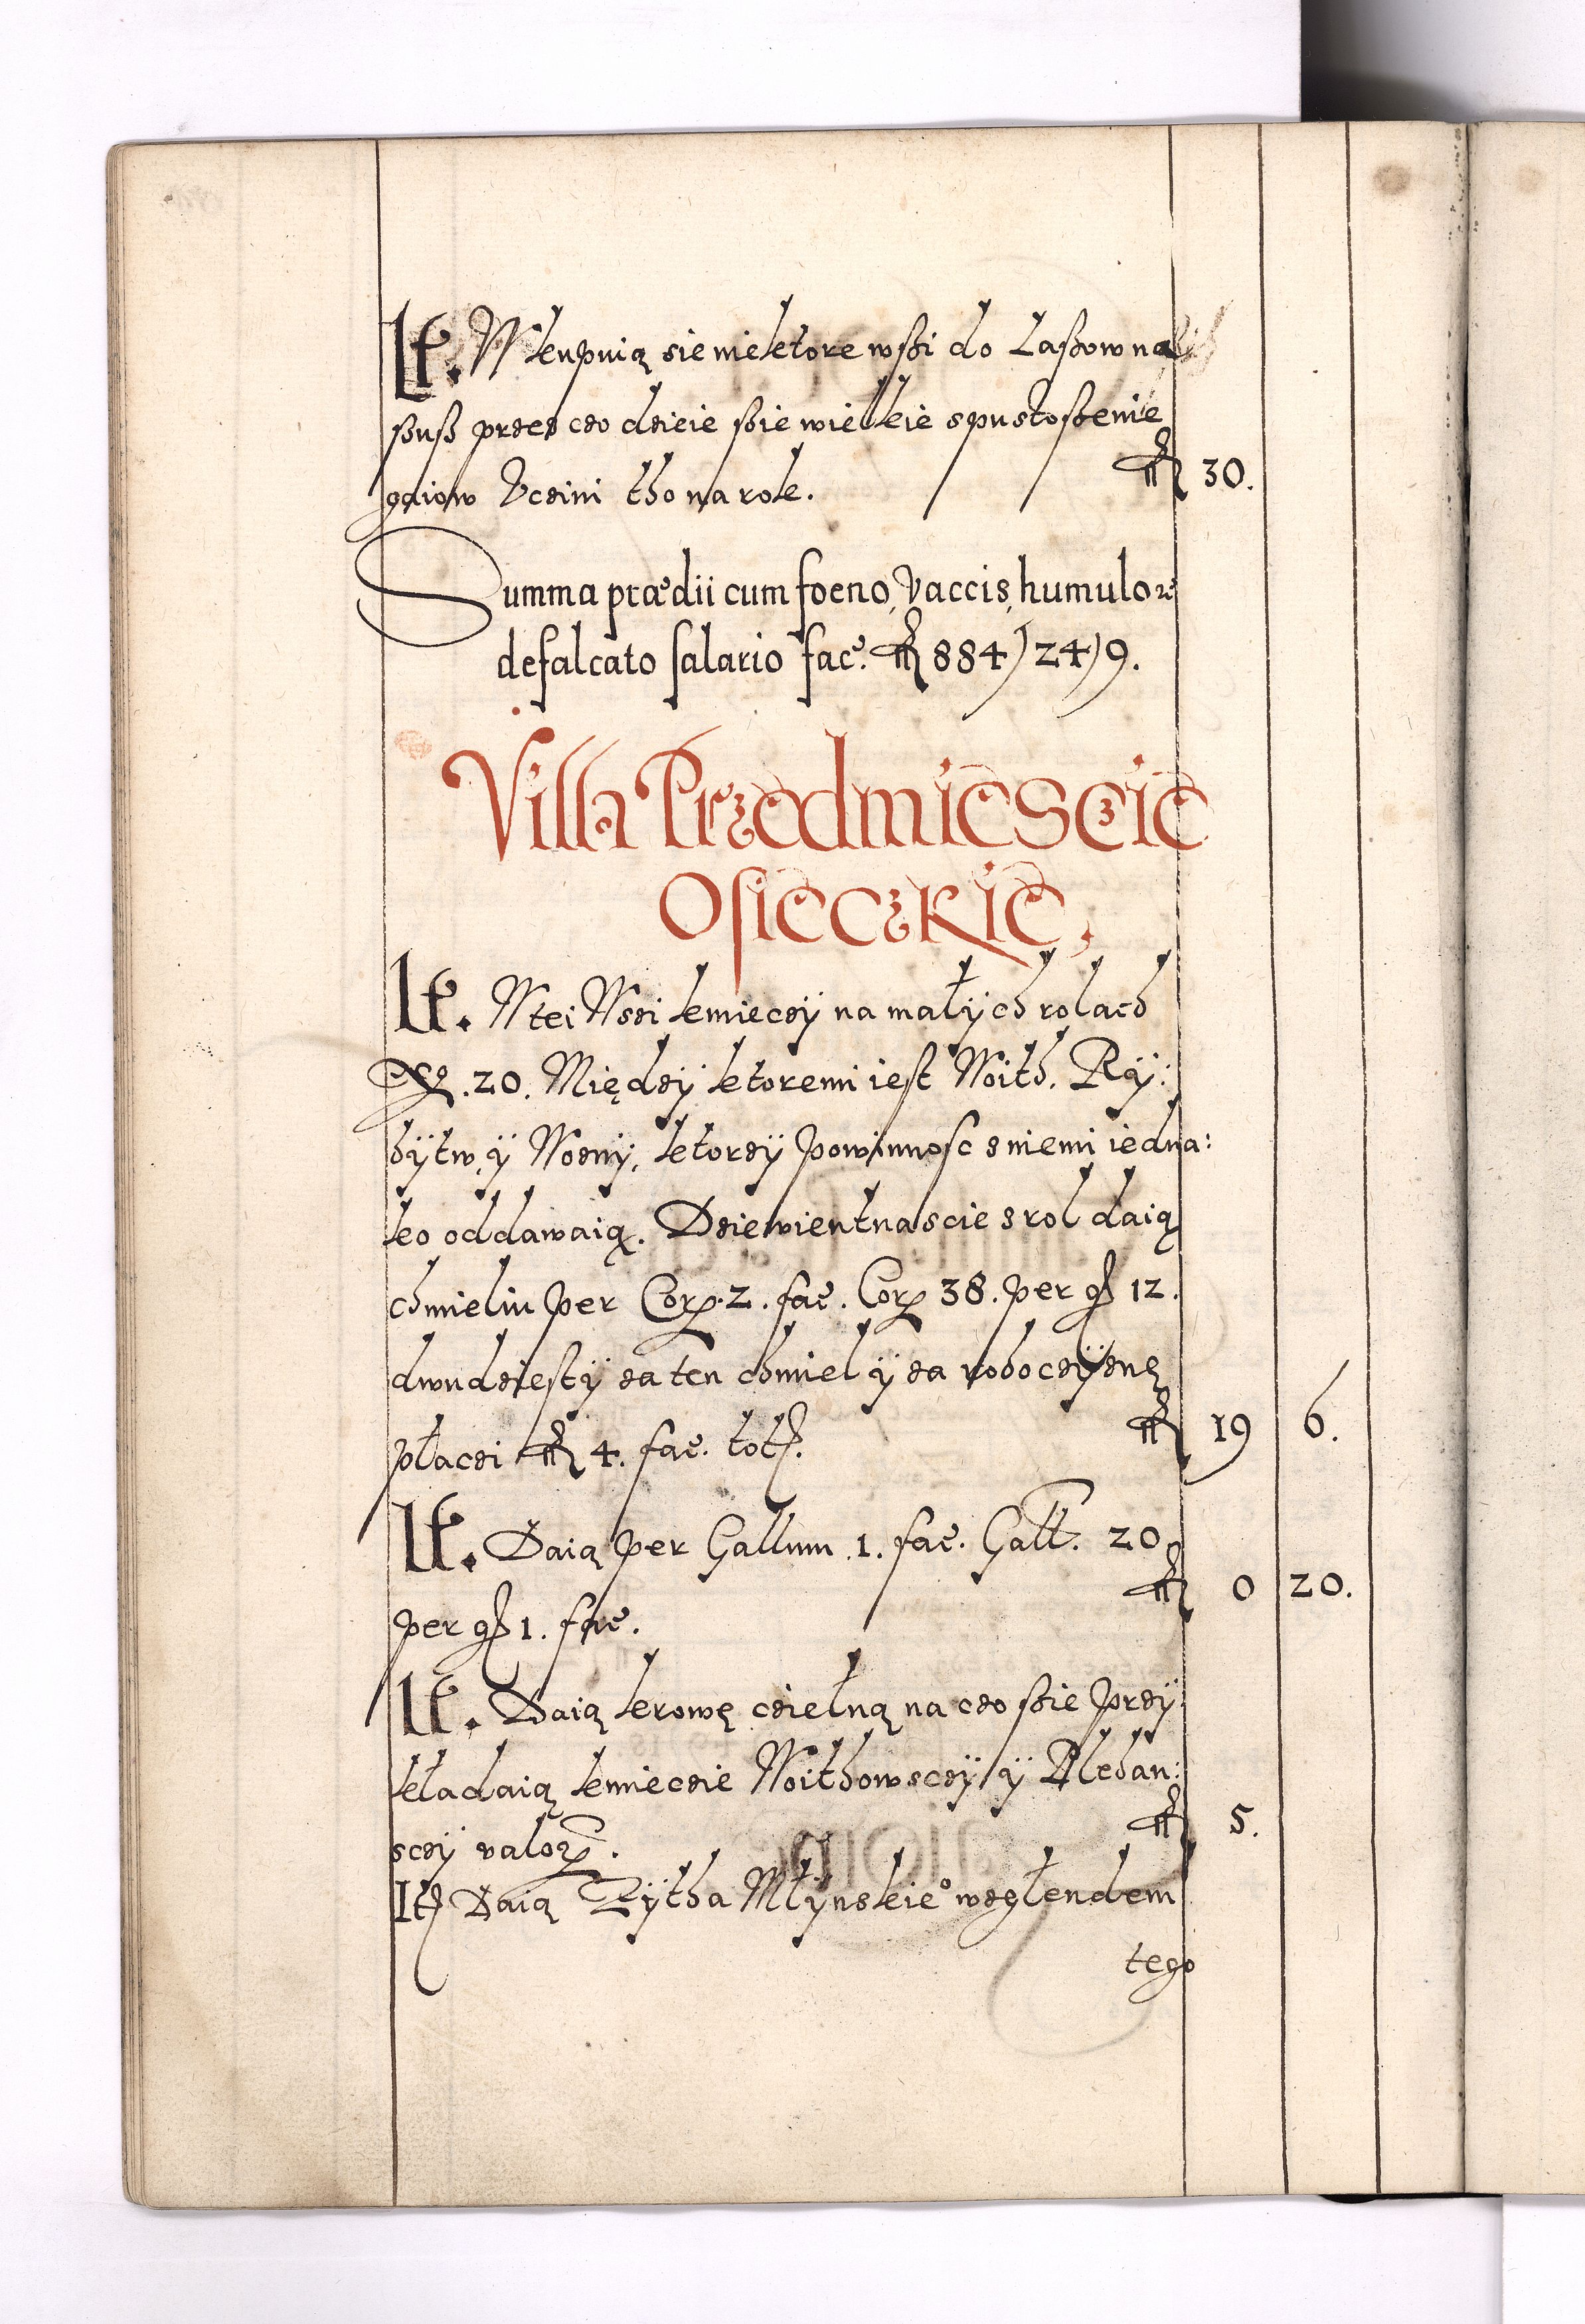 It. Wkupuią sie niektore wśśi do Laßow na
ßuß przez czo dzieie ßie wielkie spustoßenie
gaiow Vczini tho na rok. fl 30.
Summa prædii cum foeno, Vaccis, humulo et
defalcato salario fac. fl 884) 24) 9.
Villa Przedmiescie
Osieczkie,
It. W tei Wsi kmieczÿ na małÿch rolach
Nº. 20. Międzÿ ktoremi iest Woith. Rÿ:
bÿtw, ÿ Woznÿ, ktorzÿ powinnosc z niemi iedna:
ko oddawaią. Dziewientnascie z rol daią
chmieliu per Cor. 2. fac. Cor. 38. per gſ 12.
dwudziestÿ za ten chmiel ÿ za roboczÿznę
płaczi fl 4. fac. tot. fl 19 6.
It. Daią per Gallum 1. fac. Gall. 20.
per gſ 1. fac. fl 0 20.
It. Daią krowę czielną na czo ßie przÿ
kładaią kmieczie Woithowsczÿ ÿ Plebań:
sczÿ valor. fl 5.
It Daią Żÿtha Młÿnskie° względem
tego